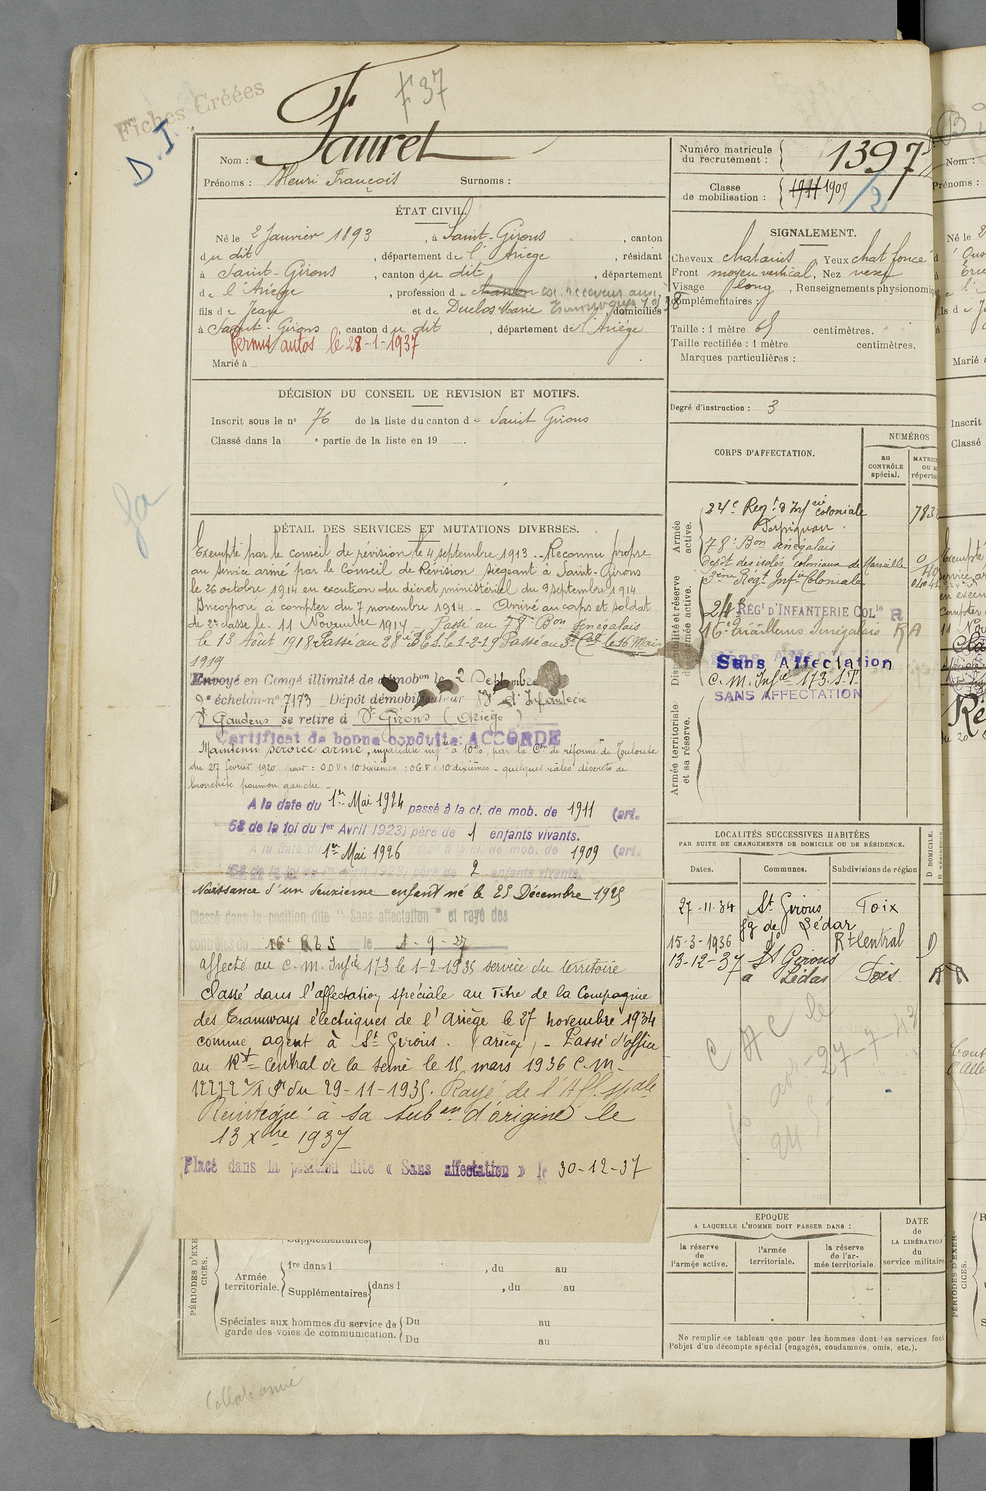 Fiches Créées
D.I.
F 37
Nom : Fauret
Prénoms : Henri François Surnoms :
ÉTAT CIVIL.
Né le 2 Janvier 1893, à Saint-Girons, canton
du dit, département de l'Ariège, résidant
à Saint-Girons, canton du dit, département
de l'Ariège, profession de
fils de Jean et de Duclos Marie domiciliés
à Saint-Girons, canton du dit, département de l'Ariège
Permis autos le 28-1-1937
Marié à
DÉCISION DU CONSEIL DE REVISION ET MOTIFS.
Inscrit sous le n° 76 de la liste du canton de Saint Girons
Classé dans la e partie de la liste en 19 .
DÉTAIL DES SERVICES ET MUTATIONS DIVERSES.
Exempté par le conseil de révision le 4 septembre 1913 . - Reconnu propre
au service armé par le Conseil de Révision siégeant à Saint-Girons
le 26 octobre 1914 en excution du décret ministériel du 9 septembre 1914
Incorporé à compter du 7 novembre 1914 - Arrivé au corps et soldat
de 2e classe le 11 Novembre 1914 - Passé au 78e Bon Sénégalais
le 13 Août 1918 Passé au le 1-2-19 Passé au le 16 Mai
1919
Envoyé en Congé illimité de démobon le 2 Septembre
échelon n° 7173 Dépôt démobilisateur d'Infanterie
St Gaudens se retire à St Girons (Ariège)
Certificat de bonne conduite ACCORDÉ
Maintenu service armé, invalidité infre à 10%, par la Con de réforme de Toulouse
du 27 février 1920 pour : O D V : 10 dixièmes : O G V : 10 dixièmes - quelques râles discrets de
bronchite poumon gauche -
A la date du 1er Mai 1924 passé à la cl. de mob. de 1911 (art.
58 de la loi du 1er Avril 1923) père de 1 enfants vivants.
A la date du 1er Mai 1926 passé à la cl. de mob. de 1909 (art.
58 de la loi du 1er Avril 1923) père de 2 enfants vivants.
Naissance d'un deuxième enfant né le 25 Décembre 1925
Classé dans la position dite "Sans-affectation" et rayé des
contrôles du 16e R T S le 1-9-27
affecté au C.M. Infie 173 le 1-2-1935 service du territoire
Classé dans l'affectation spéciale au Titre de la Compagnie
des Tramways électriques de l'Ariège le 27 novembre 1934
comme agent à St Girons (ariège) - Passé d'office
au Rt Central de la Seine le 15 mars 1936 C.M.
du 29-11-1935. Rayé de l'Aff. spale
Réintégré à sa subon d'origine le
13 Xbre 1937
Placé dans la position dite « Sans affectation » le 30-12-37
Supplémentaires
PÉRIODES D'EXERCICES.
Armée territoriale.
1re dans l , du au
Supplémentaires dans l , du au
Spéciales aux hommes du service de garde des voies de communication.
Du au
Du au
Numéro matricule du recrutement : 1397
Classe de mobilisation : 1911 1909 /2
SIGNALEMENT.
Cheveux chatains Yeux chat foncé
Front moyen vertical, Nez vexe
Visage long, Renseignements physionomi
complémentaires :
Taille : 1 mètre 65 centimètres.
Taille rectifiée : 1 mètre centimètres.
Marques particulières :
Degré d'instruction : 3
CORPS D'AFFECTATION.
NUMÉROS
au CONTRÔLE spécial.
Armée active.
24e Regt d'Infrie coloniale
Perpignan.
78e Bon Sénégalais
Dépôt des isolés coloniaux de Marseille
3ème Régt Infie Coloniale
Disponibilité et réserve de l'armée active.
24 RÉGt D'INFANTERIE COLle R
16e Tirailleurs Sénégalais RA
Sans Affectation
C.M. Infie 173. S.T.
SANS AFFECTATION
Armée territoriale et sa réserve.
LOCALITÉS SUCCESSIVES HABITÉES
PAR SUITE DE CHANGEMENTS DE DOMICILE OU DE RÉSIDENCE.
Dates. Communes. Subdivisions de région
27-11-34 St Girons Foix
fg de Lédar
15-3-1936 do Rt Central D
13-12-37 St Girons
à Lédar Foix R
C A C le
27-7-43
EPOQUE
A LAQUELLE L'HOMME DOIT PASSER DANS :
la réserve de l'armée active.
l'armée territoriale.
la réserve de l'armée territoriale.
DATE de LA LIBÉRATION du service militaire
Ne remplir ce tableau que pour les hommes dont les services font
l'objet d'un décompte spécial (engagés, condamnés, omis, etc.).